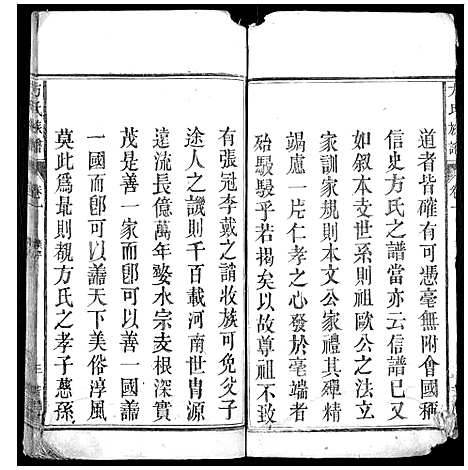 道者皆確有可憑毫無附會國稱
信史方氏之譜當亦云信譜巳又
如叙本支世系則祖歐公之法立
家訓家規則本文公家禮其殫精
竭慮一片仁孝之心發於毫端者
殆駸駸乎若揭矣以故尊祖不致
有張冠李戴之誚收族可免父子
途人之譏則千百載河南世胄源
遠流長億萬年婺水宗支根深實
茂是善一家而卽可以善一國善
一國而卽可以善天下美俗淳風
莫此爲最則覩方氏之孝子慈孫
方氏族譜
卷一
方氏族譜
卷一